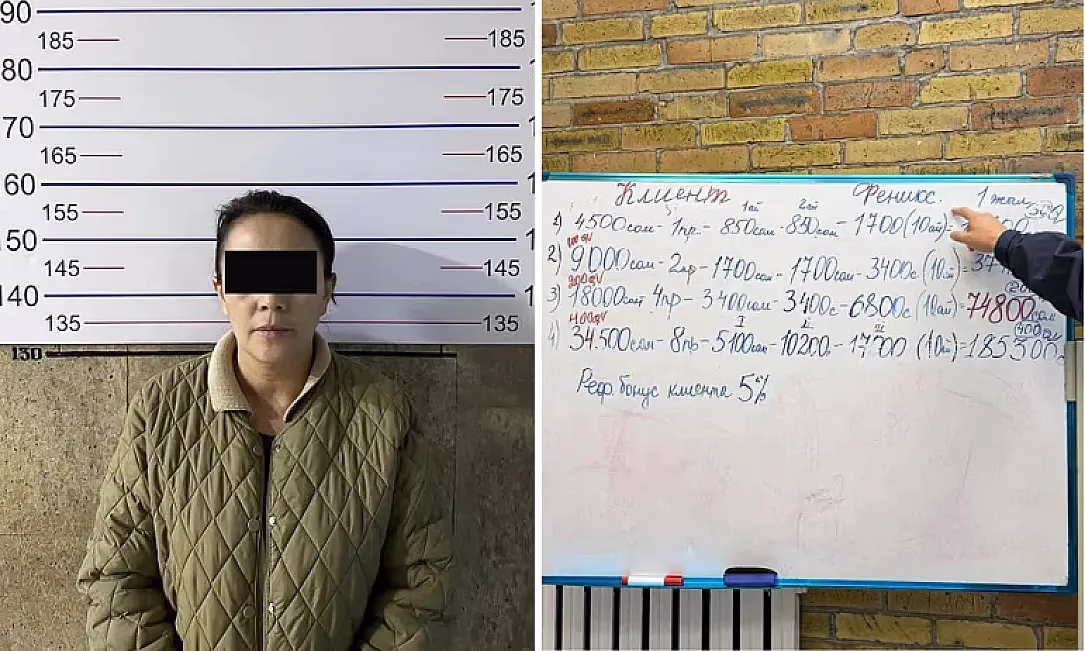 90
185 185
80
175 175
70
165 165
60
155 155
150
145 145
140
135 135
130
Клиент Феникс.
1ай 2ай
1) 4500сом - 1пр. - 850сом - 850сом - 1700 (10ай) =
100
2) 9000сом - 2пр - 1700сом - 1700сом - 3400с (10ай) = 37
200
3) 18000сом 4пр - 3400сом - 3400с - 6800с (10ай) = 74800сом
400 I II III 400
4) 34.500сом - 8пр - 5100сом - 10200 - 17700 (10ай) = 185300
Реф. бонус клиента 5%